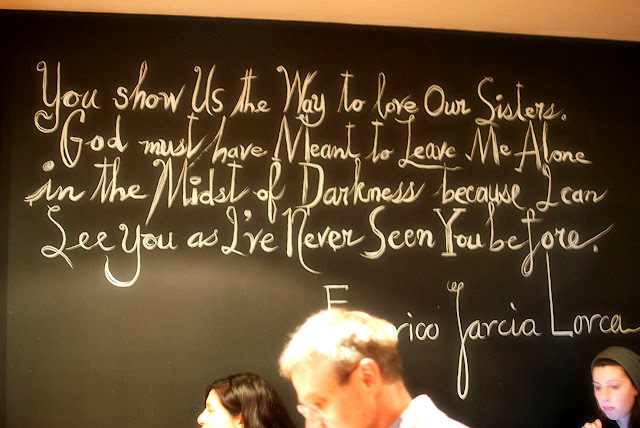 You show Us the Way to love Our Sisters.
God must have Meant to Leave Me Alone
in the Midst of Darkness because I can
See You as I've Never Seen You before.
Garcia Lorca